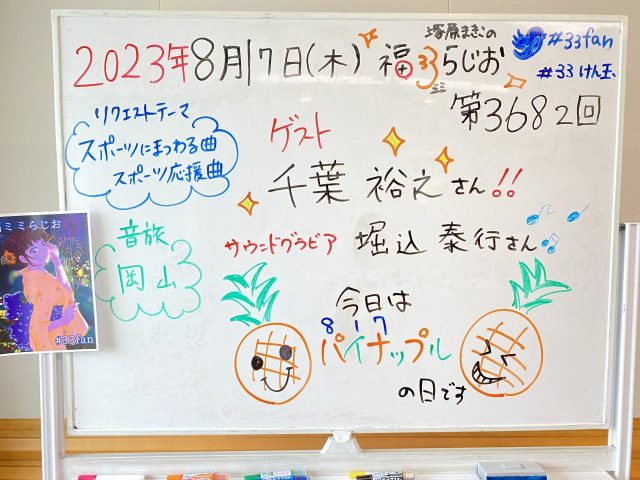 塚原まきこの
2023年8月17日(木) 福ミミらじお
#33fan
#33けん玉
第3682回
リクエストテーマ
スポーツにまつわる曲
スポーツ応援曲
ゲスト
千葉 裕之さん!!
音旅
岡山
サウンドグラビア 堀込 泰行さん
今日は
8 1 7
パイナップル
の日です
ミミらじお
#33fan